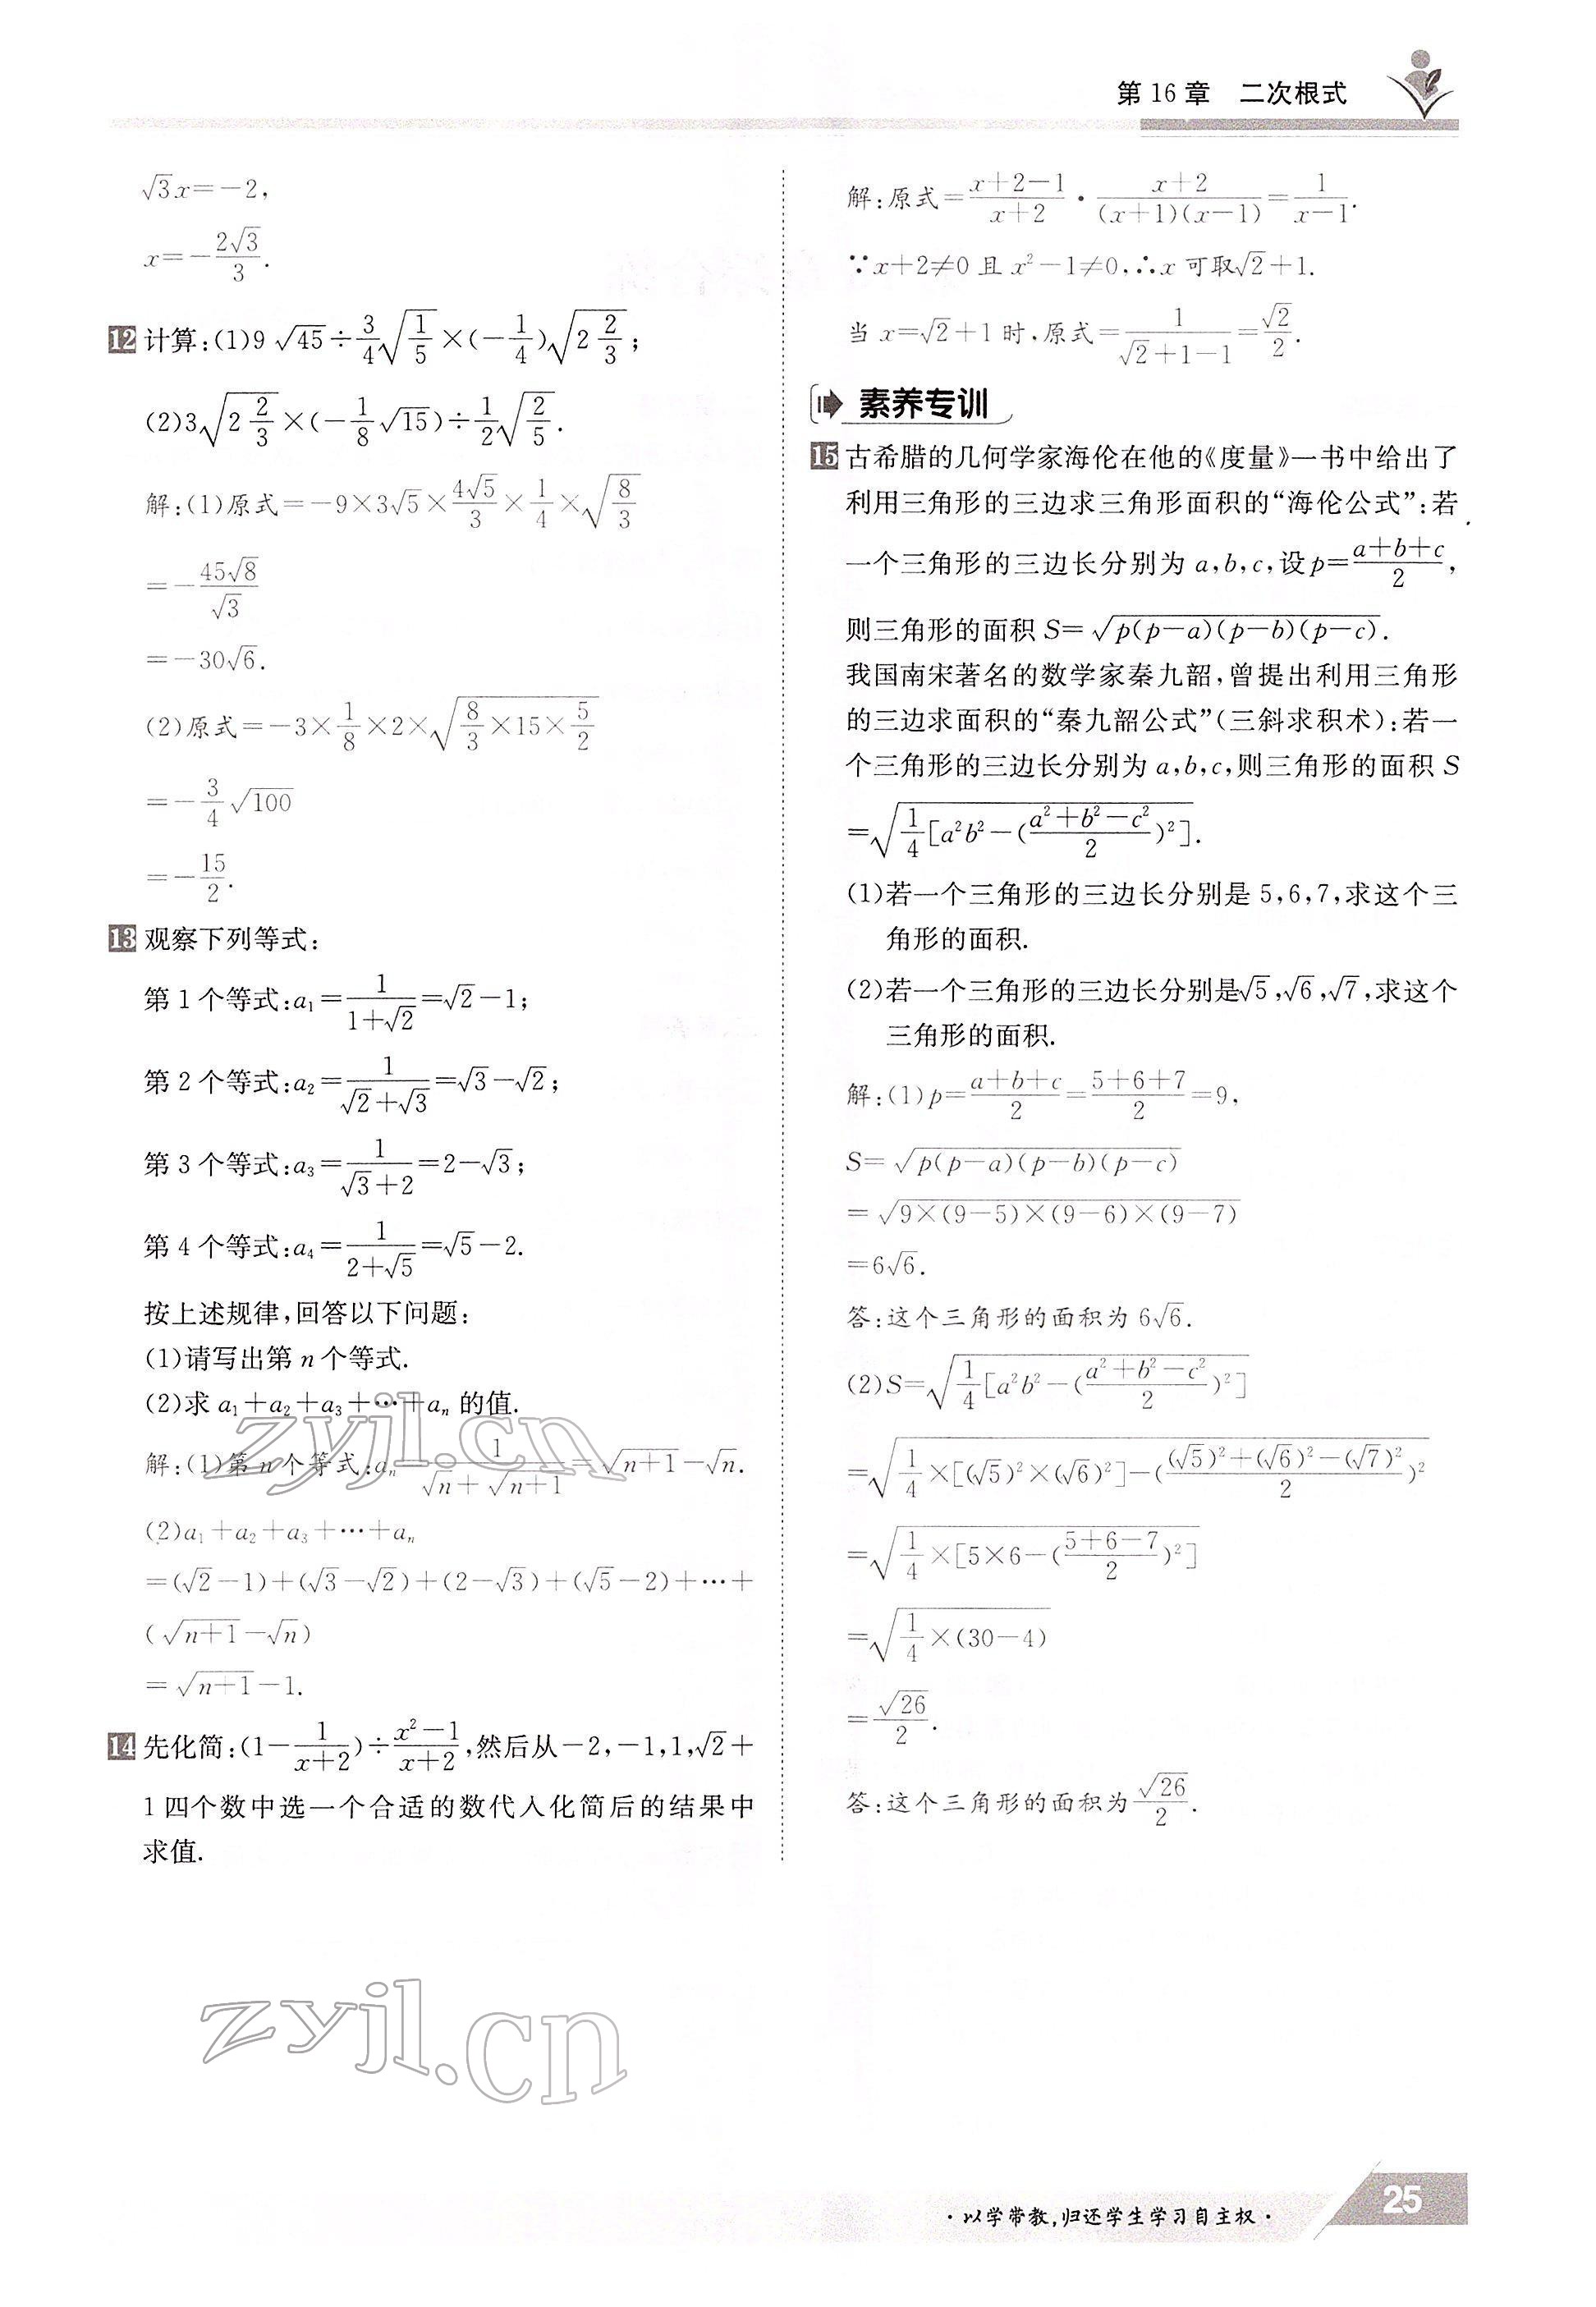 第16章 二次根式
√3x=-2,
x=-2√3/3.
12 计算:(1)9√45÷3/4√(1/5)×(-1/4)√(2 2/3);
(2)3√(2 2/3)×(-1/8√15)÷1/2√(2/5).
解:(1)原式=-9×3√5×4√5/3×1/4×√(8/3)
=-45√8/√3
=-30√6.
(2)原式=-3×1/8×2×√(8/3×15×5/2)
=-3/4√100
=-15/2.
13 观察下列等式:
第1个等式:a₁=1/(1+√2)=√2-1;
第2个等式:a₂=1/(√2+√3)=√3-√2;
第3个等式:a₃=1/(√3+2)=2-√3;
第4个等式:a₄=1/(2+√5)=√5-2.
按上述规律,回答以下问题:
(1)请写出第n个等式.
(2)求a₁+a₂+a₃+…+aₙ的值.
解:(1)第n个等式:aₙ=1/(√n+√(n+1))=√(n+1)-√n.
(2)a₁+a₂+a₃+…+aₙ
=(√2-1)+(√3-√2)+(2-√3)+(√5-2)+…+
(√(n+1)-√n)
=√(n+1)-1.
14 先化简:(1-1/(x+2))÷(x²-1)/(x+2),然后从-2,-1,1,√2+
1四个数中选一个合适的数代入化简后的结果中
求值.
解:原式=(x+2-1)/(x+2)·(x+2)/((x+1)(x-1))=1/(x-1).
∵x+2≠0且x²-1≠0,∴x可取√2+1.
当x=√2+1时,原式=1/(√2+1-1)=√2/2.
素养专训
15 古希腊的几何学家海伦在他的《度量》一书中给出了
利用三角形的三边求三角形面积的“海伦公式”:若
一个三角形的三边长分别为a,b,c,设p=(a+b+c)/2,
则三角形的面积S=√(p(p-a)(p-b)(p-c)).
我国南宋著名的数学家秦九韶,曾提出利用三角形
的三边求面积的“秦九韶公式”(三斜求积术):若一
个三角形的三边长分别为a,b,c,则三角形的面积S
=√(1/4[a²b²-((a²+b²-c²)/2)²]).
(1)若一个三角形的三边长分别是5,6,7,求这个三
角形的面积.
(2)若一个三角形的三边长分别是√5,√6,√7,求这个
三角形的面积.
解:(1)p=(a+b+c)/2=(5+6+7)/2=9,
S=√(p(p-a)(p-b)(p-c))
=√(9×(9-5)×(9-6)×(9-7))
=6√6.
答:这个三角形的面积为6√6.
(2)S=√(1/4[a²b²-((a²+b²-c²)/2)²])
=√(1/4×[(√5)²×(√6)²]-(((√5)²+(√6)²-(√7)²)/2)²)
=√(1/4×[5×6-((5+6-7)/2)²])
=√(1/4×(30-4))
=√26/2.
答:这个三角形的面积为√26/2.
zyjl.cn
zyjl.cn
·以学带教,归还学生学习自主权·
25